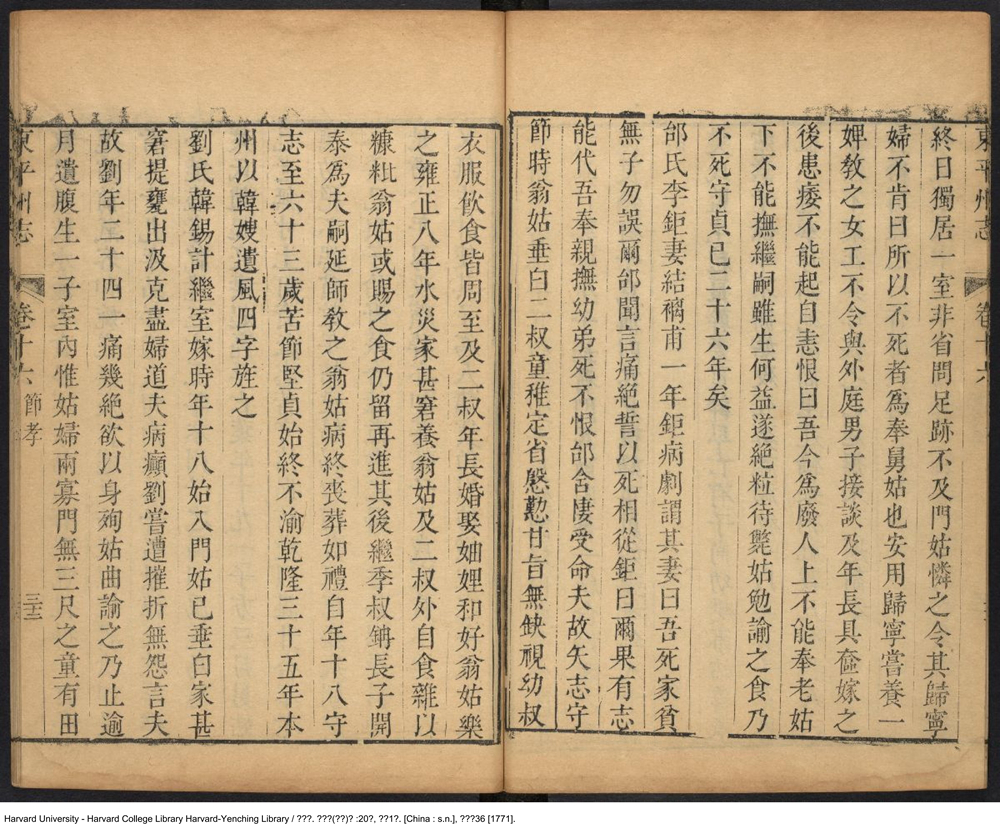 東平州志 卷十六
終日獨居一室非省問足跡不及門姑憐之令其歸寧
婦不肯曰所以不死者為奉舅姑也安用歸寧嘗養一
婢教之女工不令與外庭男子接談及年長具奩嫁之
後患痿不能起自恚恨曰吾今為廢人上不能奉老姑
下不能撫繼嗣雖生何益遂絕粒待斃姑勉諭之食乃
不死守貞已二十六年矣
邰氏李鉅妻結褵甫一年鉅病劇謂其妻曰吾死家貧
無子勿誤爾邰聞言痛絕誓以死相從鉅曰爾果有志
能代吾奉親撫幼弟死不恨邰含悽受命夫故矢志守
節時翁姑垂白二叔童稚定省慇懃甘旨無缺視幼叔
衣服飲食皆周至及二叔年長婚娶妯娌和好翁姑樂
之雍正八年水災家甚窘養翁姑及二叔外自食雜以
糠粃翁姑或賜之食仍留再進其後繼季叔鈵長子開
泰為夫嗣延師教之翁姑病終喪葬如禮自年十八守
志至六十三歲苦節堅貞始終不渝乾隆三十五年本
州以韓嫂遺風四字旌之
劉氏韓錫計繼室嫁時年十八始入門姑已垂白家甚
窘提甕出汲克盡婦道夫病癲劉嘗遭摧折無怨言夫
故劉年二十四一痛幾絕欲以身殉姑曲諭之乃止逾
月遺腹生一子室內惟姑婦兩寡門無三尺之童有田
東平州志 卷十六 節孝 三三
Harvard University - Harvard College Library Harvard-Yenching Library / ???. ???(??)? :20?, ??1?. [China : s.n.], ???36 [1771].